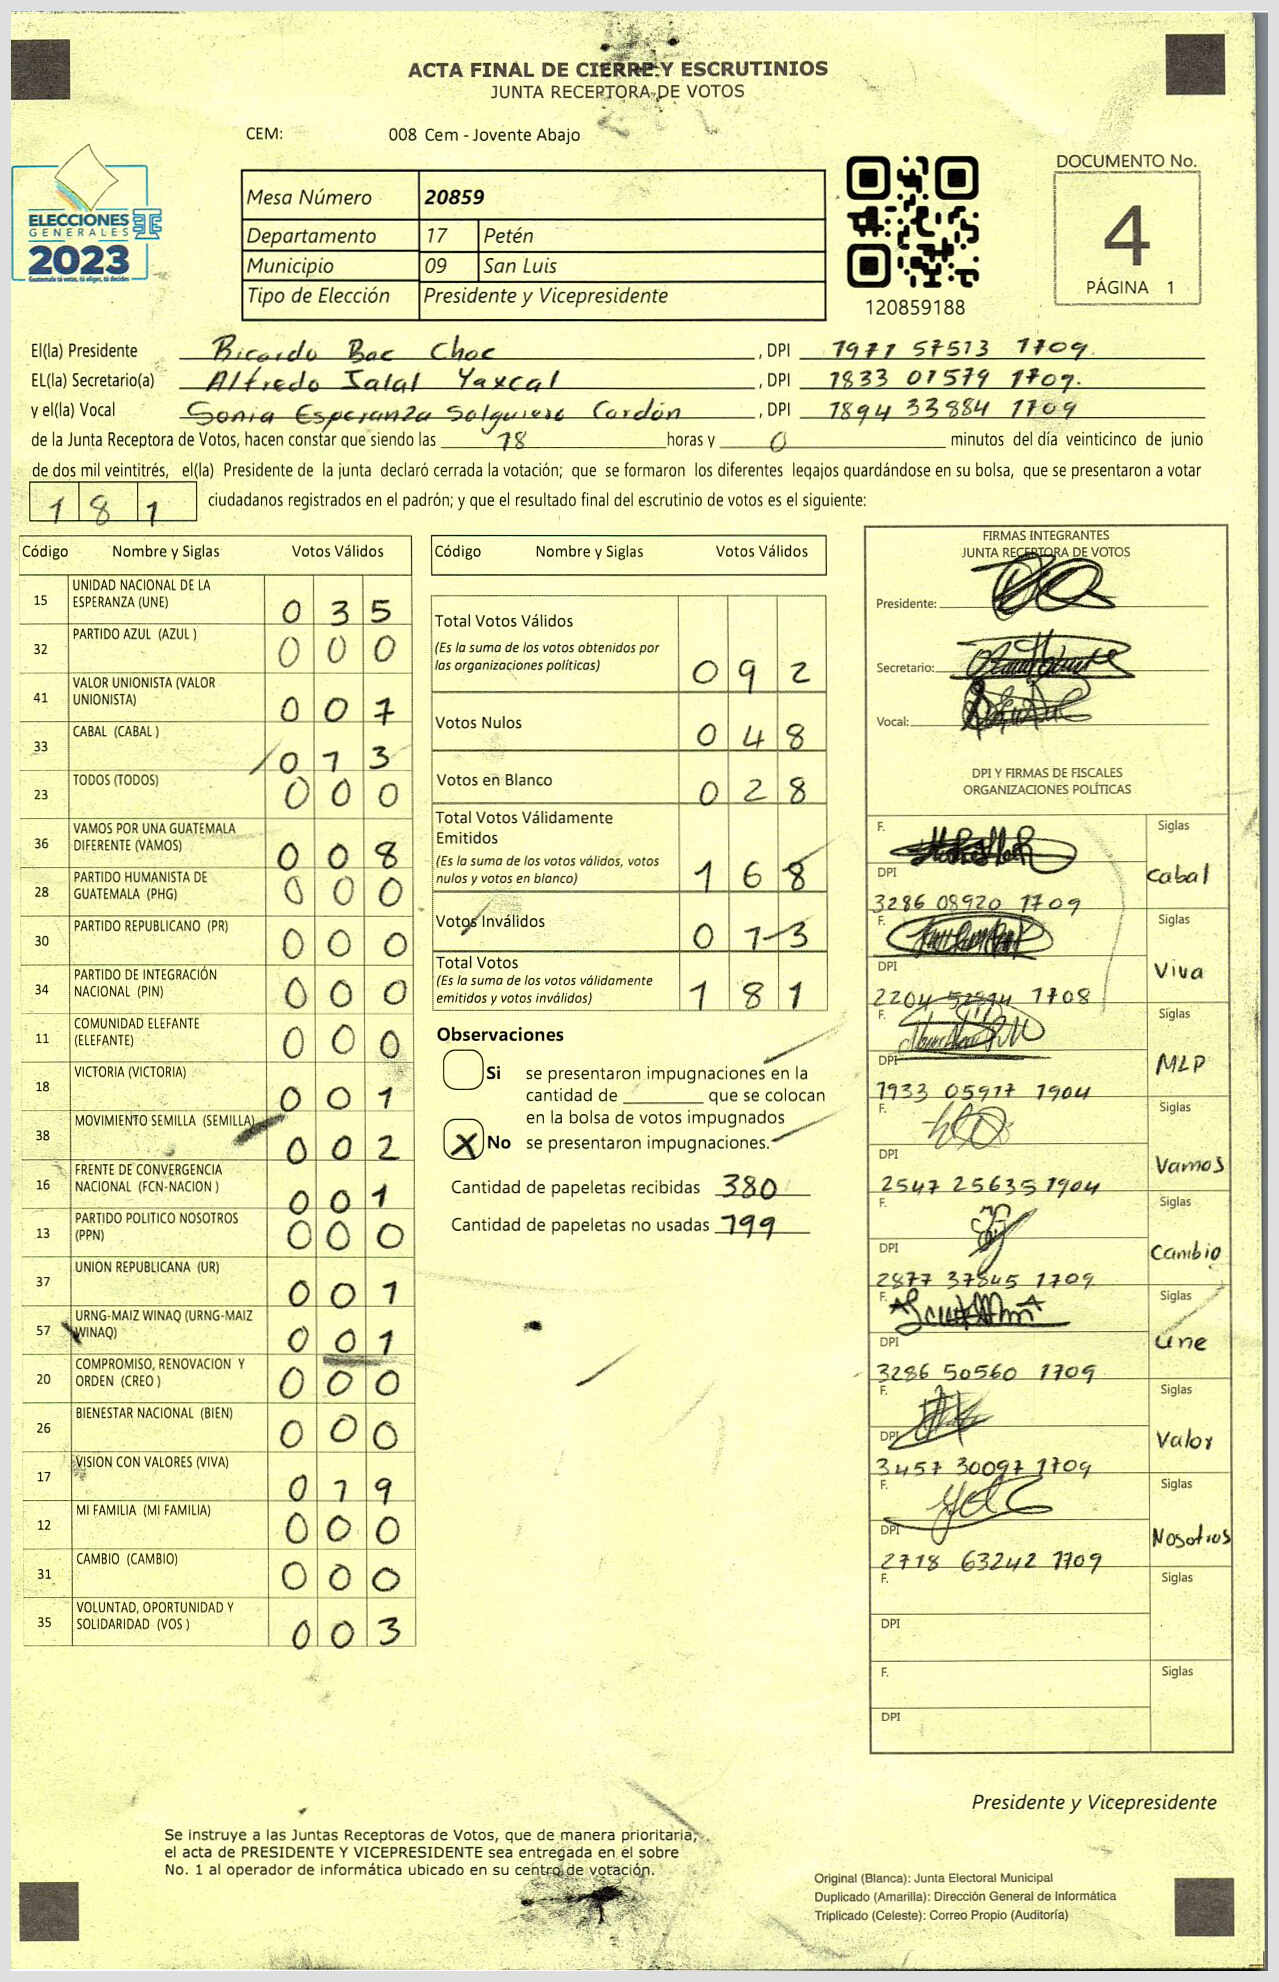 ACTA FINAL DE CIERRE Y ESCRUTINIOS
JUNTA RECEPTORA DE VOTOS
CEM: 008 Cem - Jovente Abajo
ELECCIONES
GENERALES
2023
Guatemala tú votas, tú eliges, tú decides
Mesa Número 20859
Departamento 17 Petén
Municipio 09 San Luis
Tipo de Elección Presidente y Vicepresidente
120859188
DOCUMENTO No.
4
PÁGINA 1
El(la) Presidente Ricardo Bac Choc , DPI 1971 57513 1709
EL(la) Secretario(a) Alfredo Ialal Yaxcal , DPI 1833 01579 1709.
y el(la) Vocal Sonia Esperanza Salguiero Cardón , DPI 1894 33884 1709
de la Junta Receptora de Votos, hacen constar que siendo las 18 horas y 0 minutos del día veinticinco de junio
de dos mil veintitrés, el(la) Presidente de la junta declaró cerrada la votación; que se formaron los diferentes legajos quardándose en su bolsa, que se presentaron a votar
181 ciudadanos registrados en el padrón; y que el resultado final del escrutinio de votos es el siguiente:
Código Nombre y Siglas Votos Válidos
15 UNIDAD NACIONAL DE LA ESPERANZA (UNE) 035
32 PARTIDO AZUL (AZUL ) 000
41 VALOR UNIONISTA (VALOR UNIONISTA) 007
33 CABAL (CABAL ) 013
23 TODOS (TODOS) 000
36 VAMOS POR UNA GUATEMALA DIFERENTE (VAMOS) 008
28 PARTIDO HUMANISTA DE GUATEMALA (PHG) 000
30 PARTIDO REPUBLICANO (PR) 000
34 PARTIDO DE INTEGRACIÓN NACIONAL (PIN) 000
11 COMUNIDAD ELEFANTE (ELEFANTE) 000
18 VICTORIA (VICTORIA) 001
38 MOVIMIENTO SEMILLA (SEMILLA) 002
16 FRENTE DE CONVERGENCIA NACIONAL (FCN-NACION ) 001
13 PARTIDO POLITICO NOSOTROS (PPN) 000
37 UNION REPUBLICANA (UR) 001
57 URNG-MAIZ WINAQ (URNG-MAIZ WINAQ) 001
20 COMPROMISO, RENOVACION Y ORDEN (CREO ) 000
26 BIENESTAR NACIONAL (BIEN) 000
17 VISION CON VALORES (VIVA) 019
12 MI FAMILIA (MI FAMILIA) 000
31 CAMBIO (CAMBIO) 000
35 VOLUNTAD, OPORTUNIDAD Y SOLIDARIDAD (VOS ) 003
Código Nombre y Siglas Votos Válidos
Total Votos Válidos 092
(Es la suma de los votos obtenidos por
las organizaciones políticas)
Votos Nulos 048
Votos en Blanco 028
Total Votos Válidamente
Emitidos 168
(Es la suma de los votos válidos, votos
nulos y votos en blanco)
Votos Inválidos 013
Total Votos 181
(Es la suma de los votos válidamente
emitidos y votos inválidos)
Observaciones
Si se presentaron impugnaciones en la
cantidad de ________ que se colocan
en la bolsa de votos impugnados
X No se presentaron impugnaciones.
Cantidad de papeletas recibidas 380
Cantidad de papeletas no usadas 199
FIRMAS INTEGRANTES
JUNTA RECEPTORA DE VOTOS
Presidente:
Secretario:
Vocal:
DPI Y FIRMAS DE FISCALES
ORGANIZACIONES POLÍTICAS
F. Siglas
DPI Cabal
3286 08920 1709
F. Siglas
DPI Viva
2204 52814 1708
F. Siglas
DPI MLP
1933 05917 1904
F. Siglas
DPI Vamos
2547 25635 1904
F. Siglas
DPI Cambio
2877 37845 1709
F. Siglas
DPI Une
3286 50560 1709
F. Siglas
DPI Valor
3457 30097 1709
F. Siglas
DPI Nosotros
2718 63242 1709
F. Siglas
DPI
F. Siglas
DPI
Presidente y Vicepresidente
Se instruye a las Juntas Receptoras de Votos, que de manera prioritaria,
el acta de PRESIDENTE Y VICEPRESIDENTE sea entregada en el sobre
No. 1 al operador de informática ubicado en su centro de votación.
Original (Blanca): Junta Electoral Municipal
Duplicado (Amarilla): Dirección General de Informática
Triplicado (Celeste): Correo Propio (Auditoría)